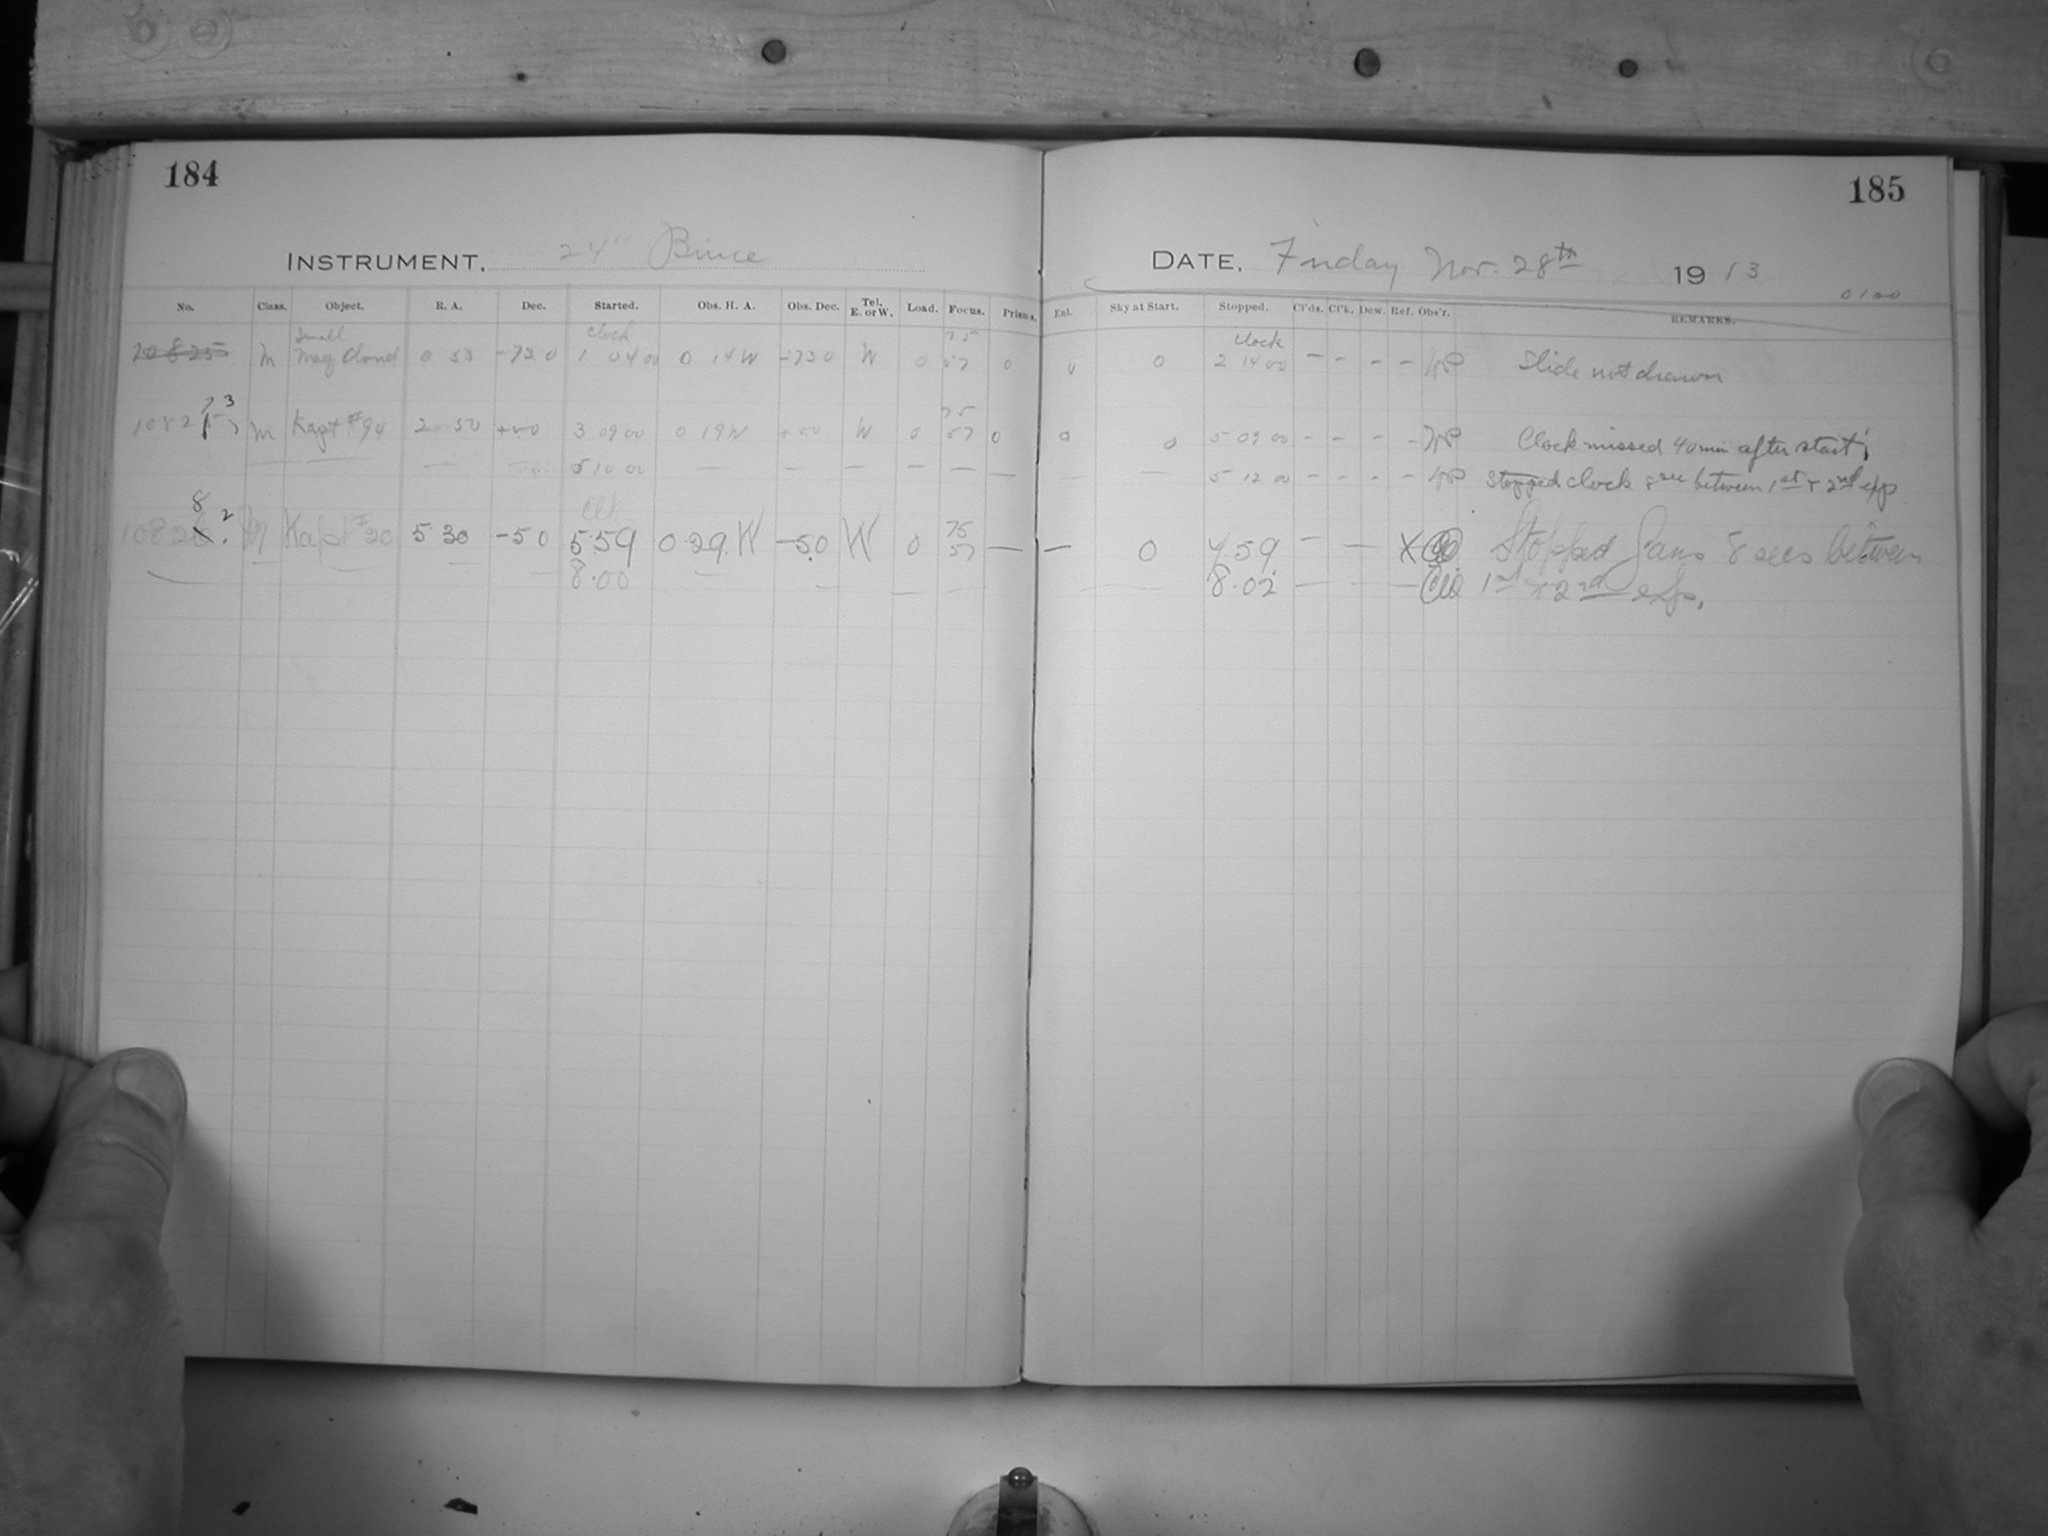 184
185
INSTRUMENT, 24" Bruce
DATE, Friday Nov. 28th 1913
No. Class. Object. R. A. Dec. Started. Obs. H. A. Obs. Dec. Tel. E. or W. Load. Focus. Prisms. Enl. Sky at Start. Stopped. Cl'ds. Cl'k. Dew. Ref. Obs'r. REMARKS.
Small Clock 75 Clock
M Mag Cloud 0 53 -73 0 1 04 00 0 14 W -73 0 W 0 57 0 0 0 2 14 00 - - - - Slide not drawn
7 3 75
1082 M Kapt #94 2 50 3 09 00 0 19 W W 0 57 0 0 0 5 09 00 - - - - Clock missed 40 min after start;
5 10 00 — — — — — — — 5 12 00 - - - - stopped clock 8 sec between 1st & 2nd exp
8 2 75
1082 M Kapt #20 5 30 -5 0 5.59 0 29 W -5.0 W 0 57 — — 0 7.59 — — X Stopped 8 secs between
8.00 8.02 — — — 1st + 2nd exp.